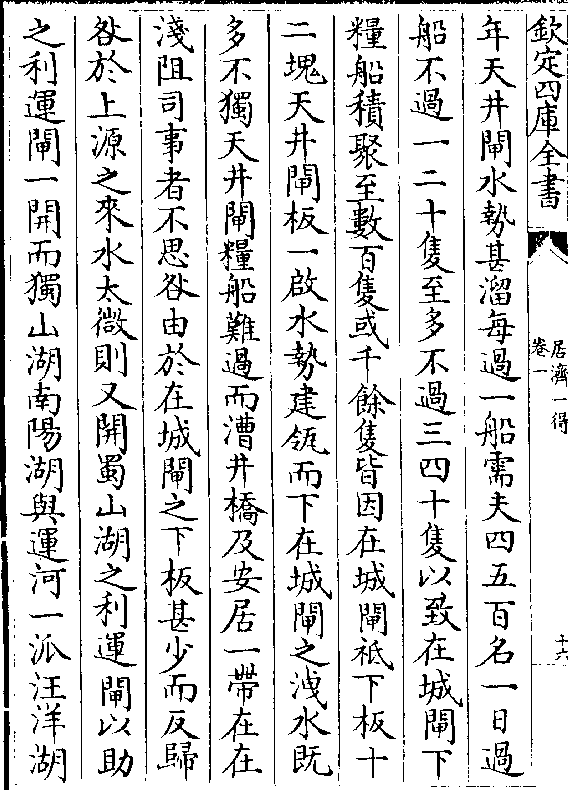 欽定四庫全書
居濟一得
卷一
十六
年天井閘水勢甚溜每過一船需夫四五百名一日過
船不過一二十隻至多不過三四十隻以致在城閘下
糧船積聚至數百隻或千餘隻皆因在城閘祗下板十
二塊天井閘板一啟水勢建瓴而下在城閘之洩水既
多不獨天井閘糧船難過而漕井橋及安居一帶在在
淺阻司事者不思咎由於在城閘之下板甚少而反歸
咎於上源之來水太微則又開蜀山湖之利運閘以助
之利運閘一開而獨山湖南陽湖與運河一派汪洋湖